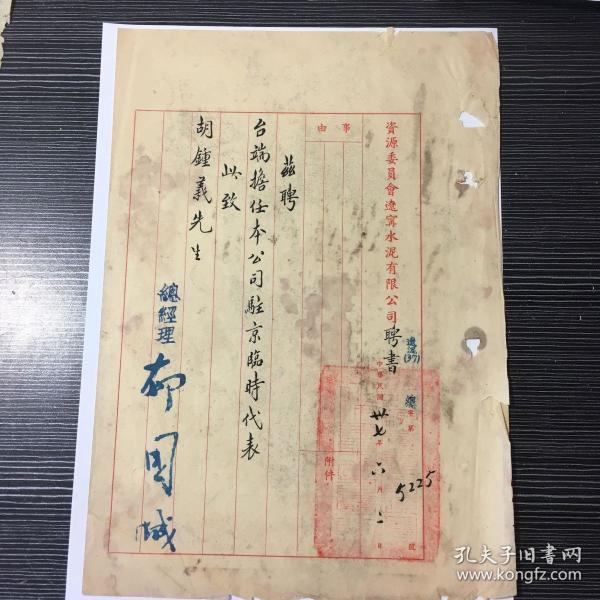 資源委員會遼寧水泥有限公司聘書
遼泥(37)
總字第5225號
中華民國卅七年六月二日
事由
附件
茲聘
台端擔任本公司駐京臨時代表
此致
胡鍾義先生
總經理
孔夫子旧书网
www.kongfz.com